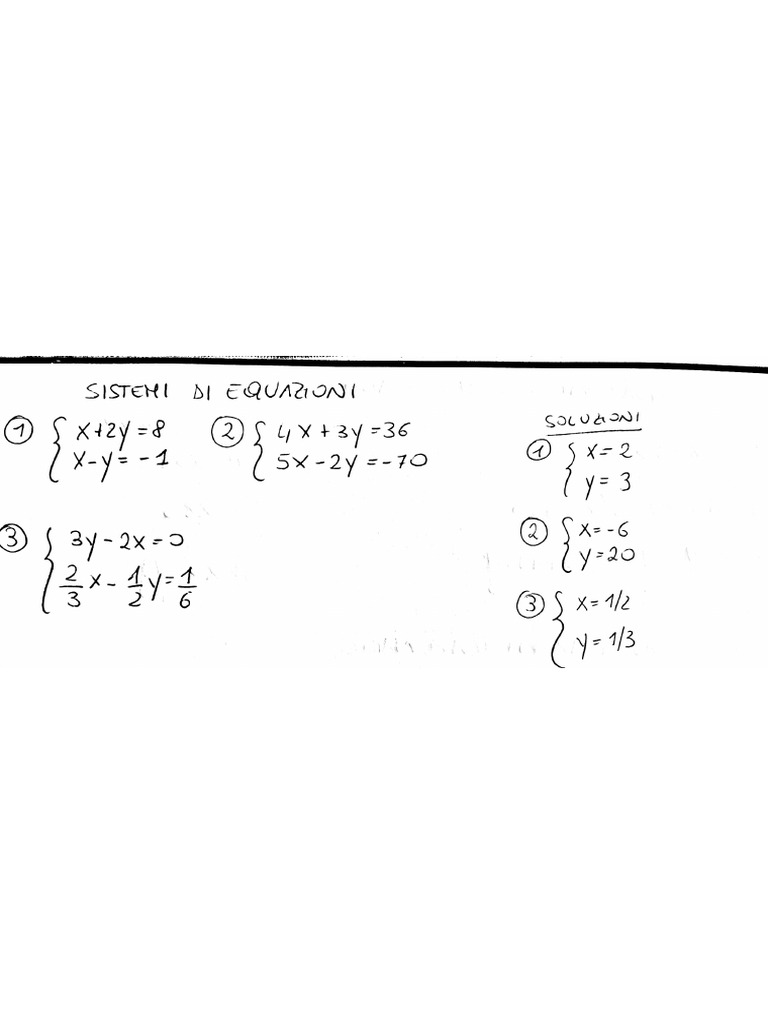 SISTEMI DI EQUAZIONI
① { x+2y=8
x-y=-1
② { 4x+3y=36
5x-2y=-70
③ { 3y-2x=0
2/3 x - 1/2 y = 1/6
SOLUZIONI
① { x=2
y=3
② { x=-6
y=20
③ { x=1/2
y=1/3